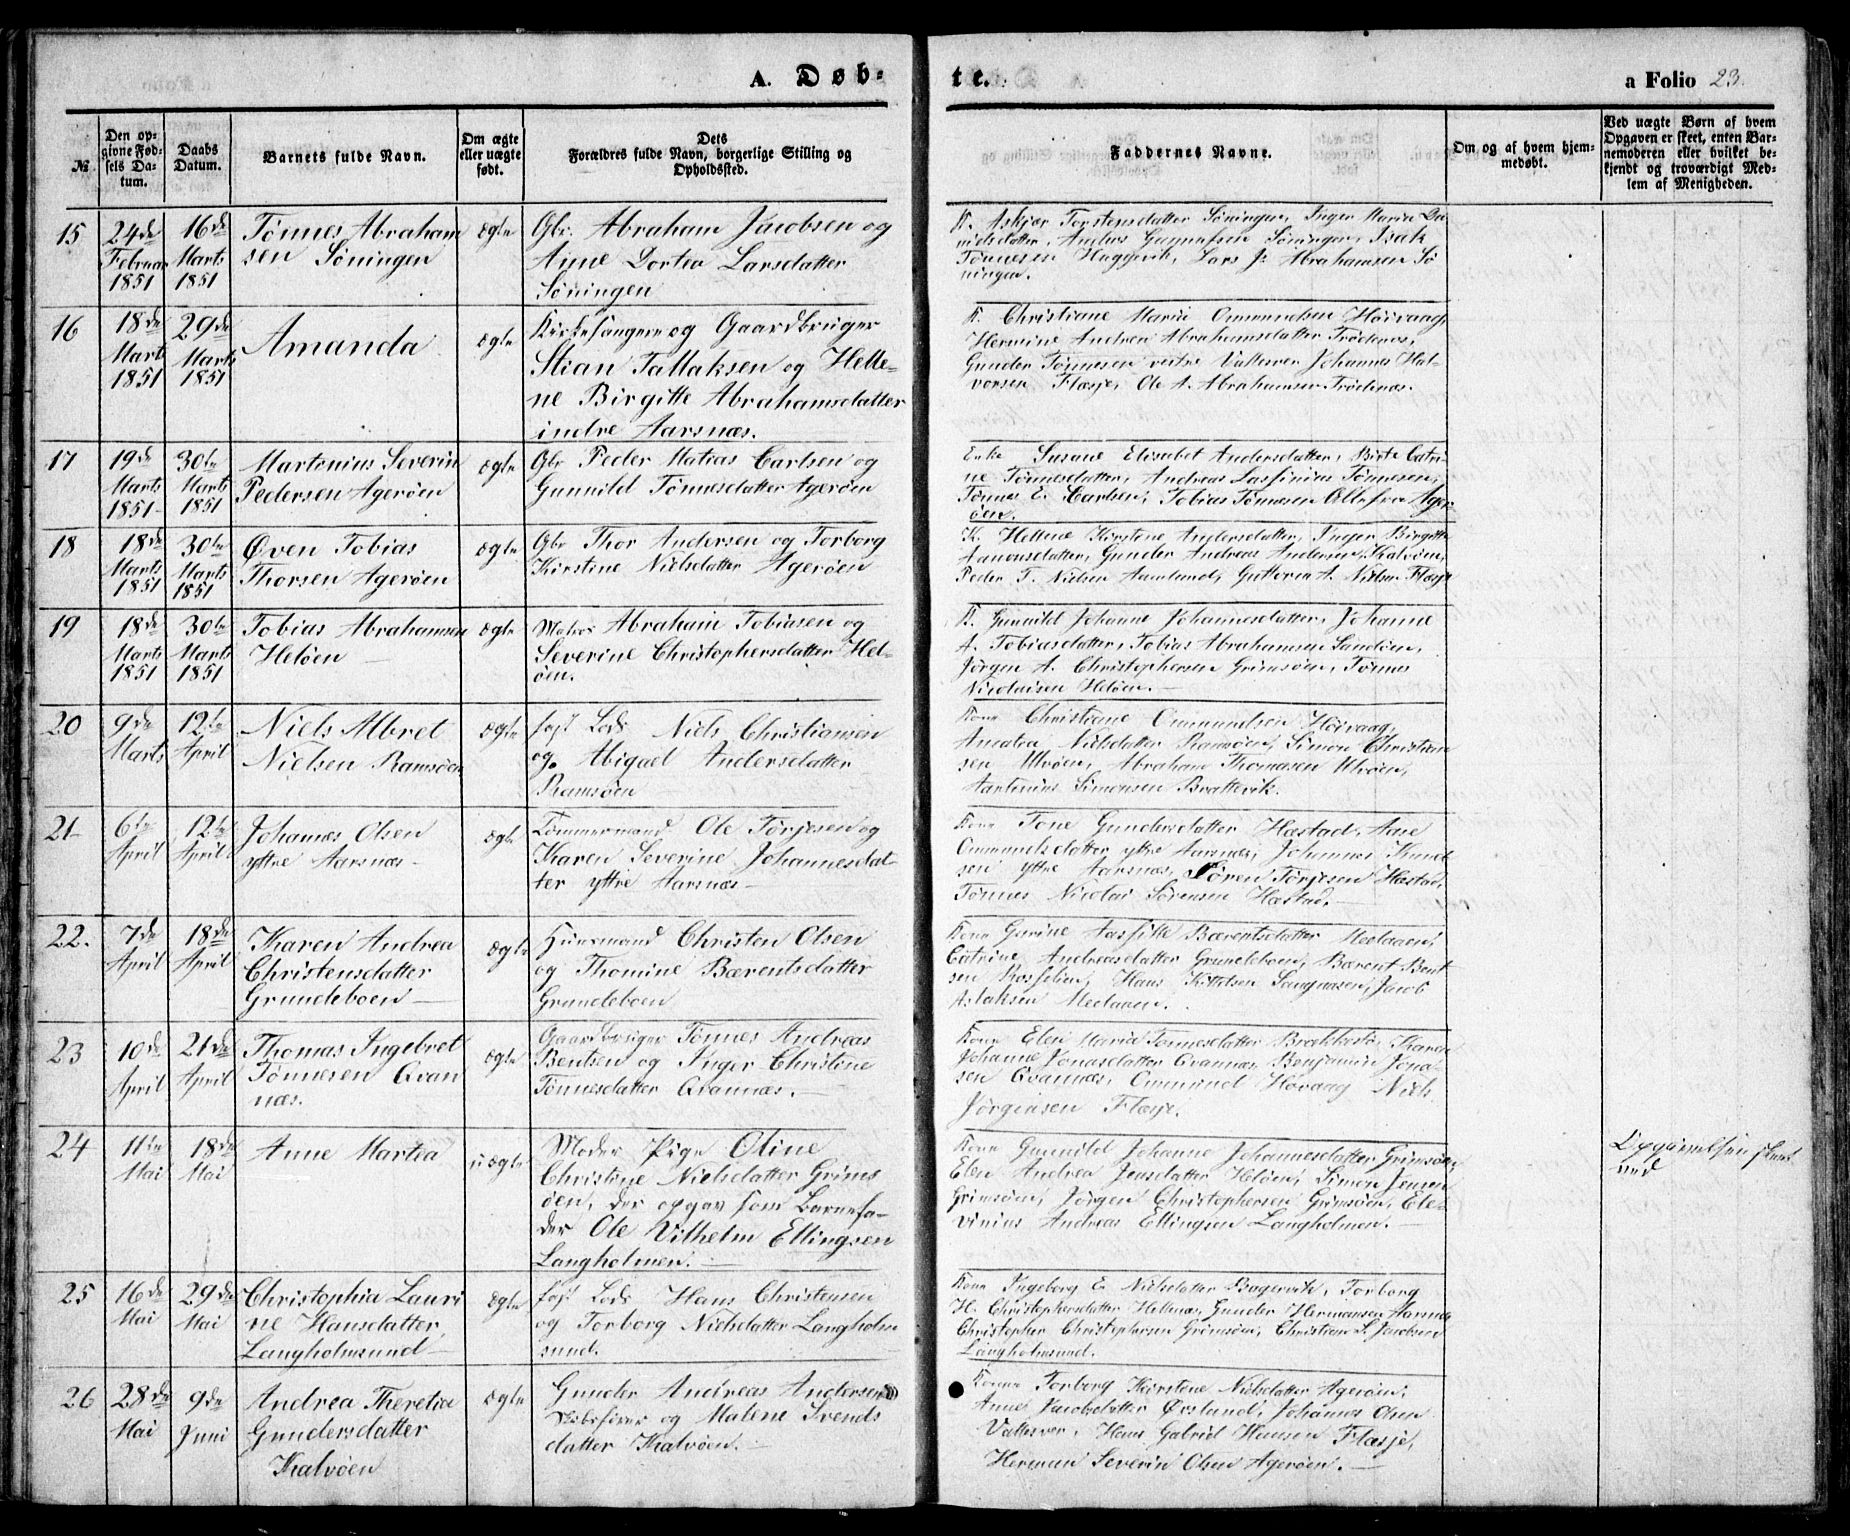 A. Døb-
te.
a Folio 23.
№
Den op-
givne Fød-
sels Da-
tum.
Daabs
Datum.
Barnets fulde Navn.
Om ægte
eller uægte
født.
Dets
Forældres fulde Navn, borgerlige Stilling og
Opholdssted.
Faddernes Navne.
Om og af hvem hjem-
medøbt.
Ved uægte Børn af hvem
Opgaven er skeet, enten Bar-
nemoderen eller hvilket be-
kjendt og troværdigt Med-
lem af Menigheden.
15
24de
Februar
1851
16de
Marts
1851
Tönnes Abraham
sen Söningen
ægte
Gbr. Abraham Jacobsen og
Anne Dortea Larsdatter
Söningen
K. Askjær Torstensdatter Söningen, Inger Maria Da-
nielsdatter, Anders Gunnufsen Söningen, Isak
Tönnesen Hæggevik, Lars J. Abrahamsen Sö
ningen.
16
18de
Marts
1851
29de
Marts
1851
Amanda
ægte
Kirkesanger og Gaardbruger
Stian Tallaksen og Helle-
ne Birgitte Abrahamsdatter
indre Aarsnæs.
K. Christiane Marie Ommundsen Höivaag,
Hermine Andrea Abrahamsdatter Trödenæs,
Gunder Tönnesen Valtesver Johannes Hal-
vorsen Flæsje, Ole A. Abrahamsen Trödenæs.
17
19de
Marts
1851
30te
Marts
1851
Martinius Severin
Pedersen Ageröen
ægte
Gbr Peder Matias Carlsen og
Gunnild Tönnesdatter Ageröen
Enke Susane Elisabet Andersdatter, Birte Catri-
ne Tönnesdatter, Andreas Tönnesen,
Tönnes E. Carlsen, Tobias Tönnesen Alle fra Ager
öen.
18
18de
Marts
1851
30te
Marts
1851
Öven Tobias
Thorsen Ageröen
ægte
Gbr Thor Andersen og Torborg
Kirstine Nielsdatter Ageröen
K. Hellene Kirstene Andersdatter, Inger Birgitte
Aanonsdatter, Gunder Andreas Andersen Kalvöen,
Peder T. Nielsen Aamlund, Guttorm A. Nielsen Flæsje
19
18de
Marts
1851
30te
Marts
1851
Tobias Abrahamsen
Helöen
ægte
Matros Abraham Tobiasen og
Severine Christophersdatter Hel-
öen.
K. Gunnild Johanne Johannesdatter, Johanne
A. Tobiasdatter, Tobias Abrahamsen Sandöen,
Jörgen A. Christophersen Grimsöen, Tönnes
Nicolaisen Helöen.
20
9de
Marts
12te
April
Niels Albret
Nielsen Ramsöen
ægte
fast Lods Niels Christiansen
og Abigael Andersdatter
Ramsöen
Kone Christiane Ommundsen Höivaag,
Amalia Nielsdatter Ramsöen, Simon Christian
sen Ulvöen, Abraham Thomasen Ulvöen,
Aantonius Simonsen Brattevik.
21
6te
April
12te
April
Johannes Olsen
yttre Aarsnæs
ægte
Tömmermand Ole Törjesen og
Karen Severine Johannesdat-
ter yttre Aarsnæs
Kone Tone Gundersdatter Hæstad, Aase
Ommundsdatter yttre Aarsnæs, Johannes Knud
sen yttre Aarsnæs, Sören Törjesen Hæstad,
Tönnes Nicolai Sörensen Hæstad.
22.
7de
April
18de
April
Karen Andrea
Christensdatter
Grundeboen
ægte
Huusmand Christen Olsen
og Thomine Bærentsdatter
Grundeboen
Kone Gurine Bærentsdatter
Catrine Andreasdatter Grundeboen, Bærent Bent
sen Hans Jacob
Aslaksen
23
10de
April
21de
April
Thomas Ingebret
Tönnesen Qvan
næs.
ægte
Gaardbruger Tönnes Andreas
Bentsen og Inger Christine
Tönnesdatter Qvannæs.
Kone Elen Maria Tönnesdatter Brækkestö, Karen
Johanne Jonasdatter Qvannæs, Benjamin Jona-
sen Qvannæs, Ommund Hövaag Niels
Jörgensen Flæsje.
24
11te
Mai
18de
Mai
Anne Martea
uægte
Moder Pige Oline
Christine Nielsdatter Grims
öen, der opgav som Barnefa-
der Ole Vilhelm Ellingsen
Langholmen.
Kone Gunnild Johanne Johannesdatter Grimsöen,
Elen Andrea Jensdatter Helöen, Simon Jensen
Grimsöen, Jörgen Christophersen Grimsöen, Ele-
vinius Andreas Ellingsen Langholmen.
ved
25
16de
Mai
29de
Mai
Christophia Lauri
ne Hansdatter
Langholmsund
ægte
fast Lods Hans Christensen
og Torborg Nielsdatter Langholm
sund.
Kone Ingeborg E. Nielsdatter Bagervik, Torborg
H. Christophersdatter Hellenæs, Gunder Hermansen
Christopher Christophersen Grimsöen, Christian S. Jacobsen
Langholmsund.
26
28de
Mai
9de
Juni
Andrea Theretia
Gundersdatter
Kalvöen
ægte
Gunder Andreas Andersen
Skibsförer og Malene Svends
datter Kalvöen.
Konen Torborg Kirstene Nielsdatter Ageröen,
Anne Jacobsdatter Örslund, Johannes Olsen
Valtesver, Hans Gabriel Hansen Flæsje,
Herman Severin Olsen Ageröen.